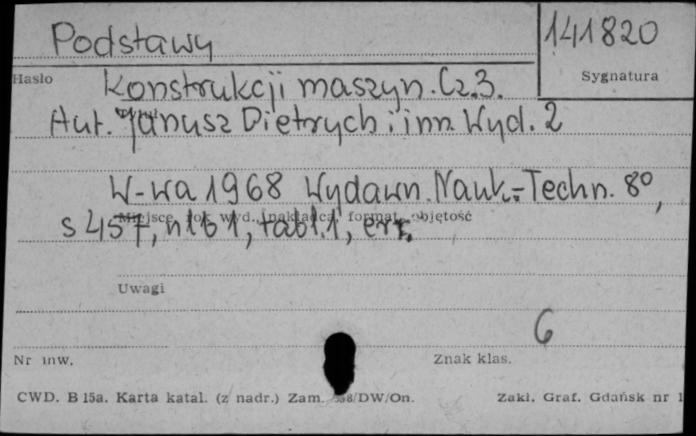 Podstawy
141820
Hasło
Sygnatura
Konstrukcji maszyn. Cz. 3.
Aut. Janusz Dietrych i inn. Wyd. 2
W-wa 1968 Wydawn. Nauk.-Techn. 8°,
Miejsce, rok wyd., nakładca, format, objętość
s 457, nlb 1, tabl. 1, err.
Uwagi
6
Nr inw.
Znak klas.
CWD. B 15a. Karta katal. (z nadr.) Zam. /DW/On.
Zakł. Graf. Gdańsk nr 1